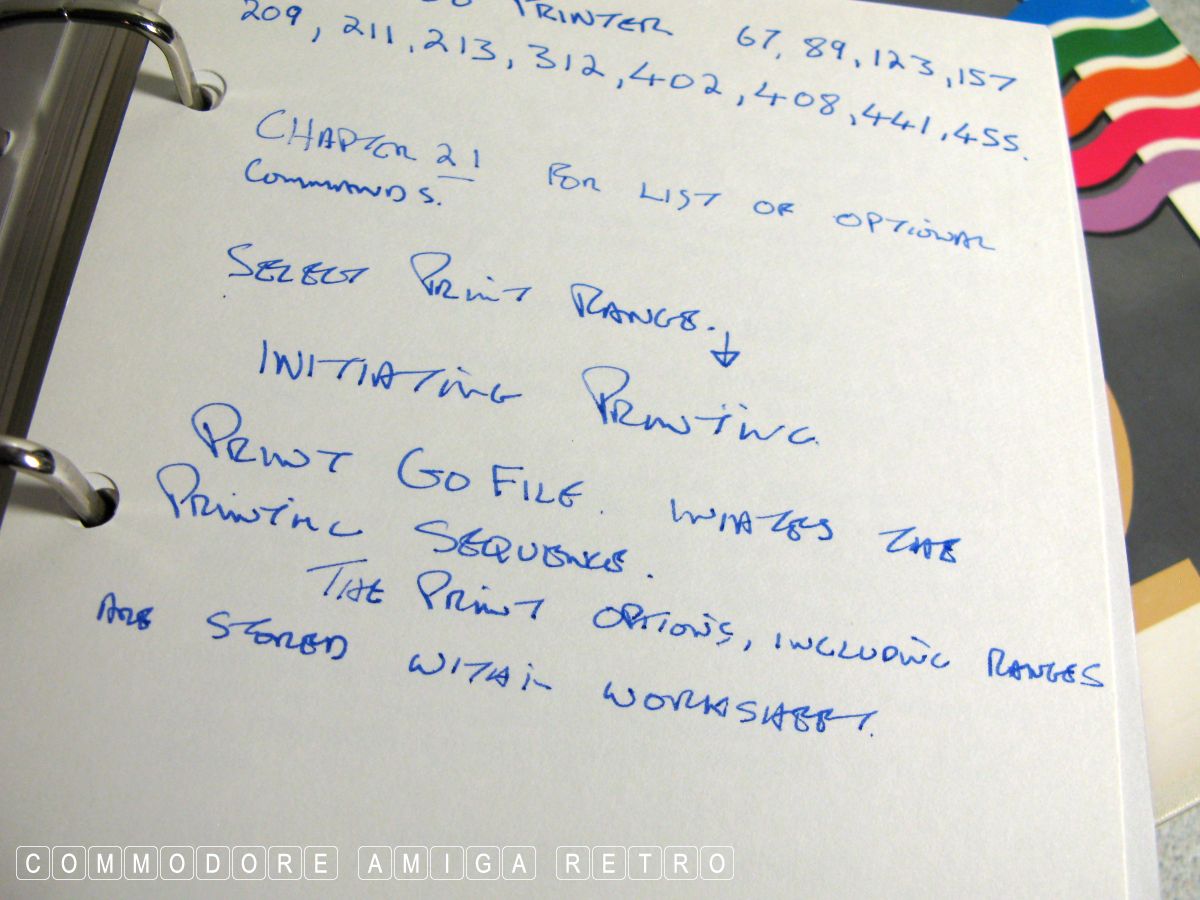 PRINTER 67, 89, 123, 157
209, 211, 213, 312, 402, 408, 441, 455.
CHAPTER 21 FOR LIST OF OPTIONAL
COMMANDS.
SELECT PRINT RANGE. ↓
INITIATING PRINTING
PRINT GO FILE. INIATES THE
PRINTING SEQUENCE.
THE PRINT OPTIONS, INCLUDING RANGES
ARE STORED WITHIN WORKSHEET.
COMMODORE AMIGA RETRO